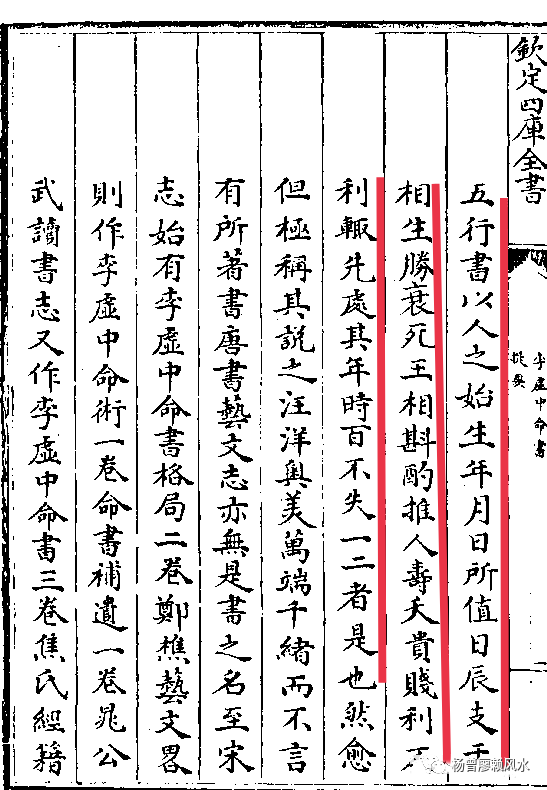 欽定四庫全書
李虛中命書
提要
五行書以人之始生年月日所值日辰支干
相生勝衰死王相斟酌推人壽夭貴賤利不
利輒先處其年時百不失一二者是也然愈
但極稱其說之汪洋奥美萬端千緒而不言
有所著書唐書藝文志亦無是書之名至宋
志始有李虛中命書格局二卷鄭樵藝文畧
則作李虛中命術一卷命書補遺一卷晁公
武讀書志又作李虛中命書三卷焦氏經籍
杨曾廖赖风水